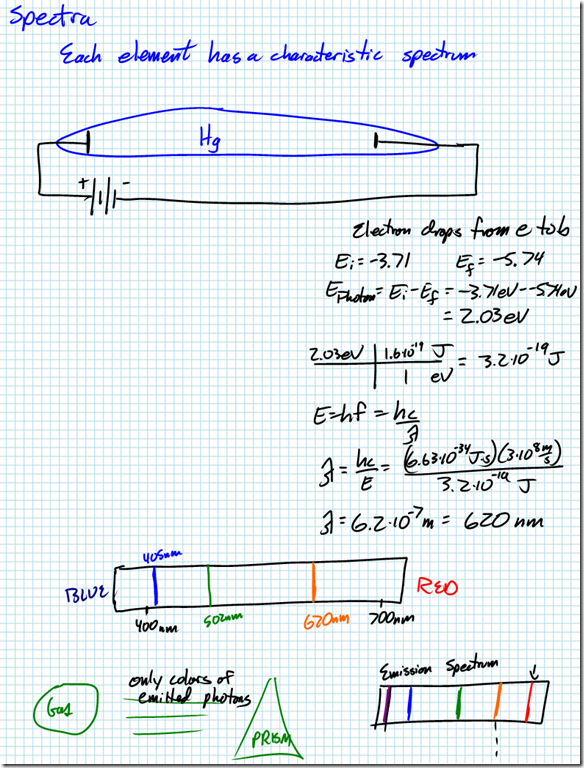 Spectra
Each element has a characteristic spectrum
Hg
+ -
Electron drops from e to b
Ei = -3.71 Ef = -5.74
EPhoton = Ei - Ef = -3.71eV - -5.74eV
= 2.03eV
2.03eV | 1.6·10⁻¹⁹ J = 3.2·10⁻¹⁹ J
1 eV
E = hf = hc/λ
λ = hc/E = (6.63·10⁻³⁴ J·s)(3·10⁸ m/s) / 3.2·10⁻¹⁹ J
λ = 6.2·10⁻⁷ m = 620 nm
405nm
BLUE RED
400nm 502nm 620nm 700nm
Emission Spectrum
only colors of
emitted photons
Gas
PRISM